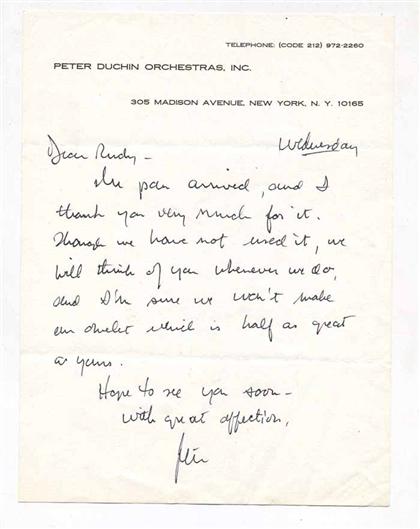 TELEPHONE: (CODE 212) 972-2260
PETER DUCHIN ORCHESTRAS, INC.
305 MADISON AVENUE, NEW YORK, N. Y. 10165
Wednesday
Dear Rudy –
The pan arrived, and I
thank you very much for it.
Though we have not used it, we
will think of you whenever we do,
and I'm sure we won't make
an omelet which is half as great
as yours.
Hope to see you soon –
with great affection,
Peter